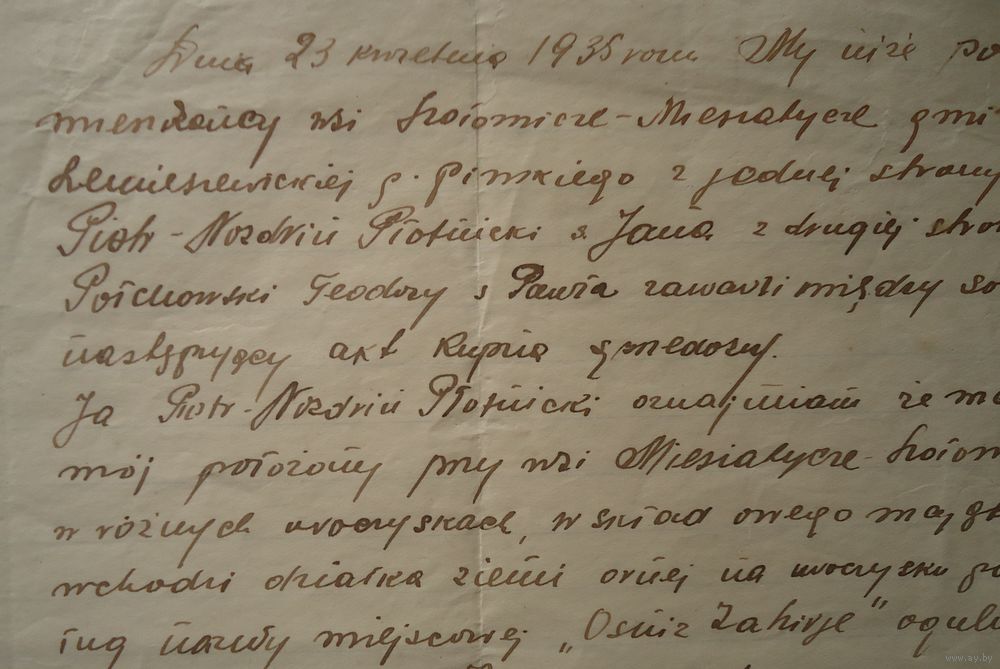 Dnia 23 kwietnia 1935 roku My niże po
mieszkańcy wsi Sołomicze-Miesiatycze gmi
Lemieszewickiej p. Pinskiego z jednej strony
Piotr-Nozdrin Płotnicki s Jana z drugiej stro
Połchowski Teodozy s Pawła zawarli między so
następujący akt kupna sprzedaży.
Ja Piotr-Nozdrin Płotnicki oznajmiam że ma
mój położony przy wsi Miesiatycze-Sołom
w różnych uroczyskach, w skład owego mająt
wchodzi działka ziemi ornej na uroczysku
ług nazwy miejscowej „Osnіz Zahirje” oguln
www.ay.by